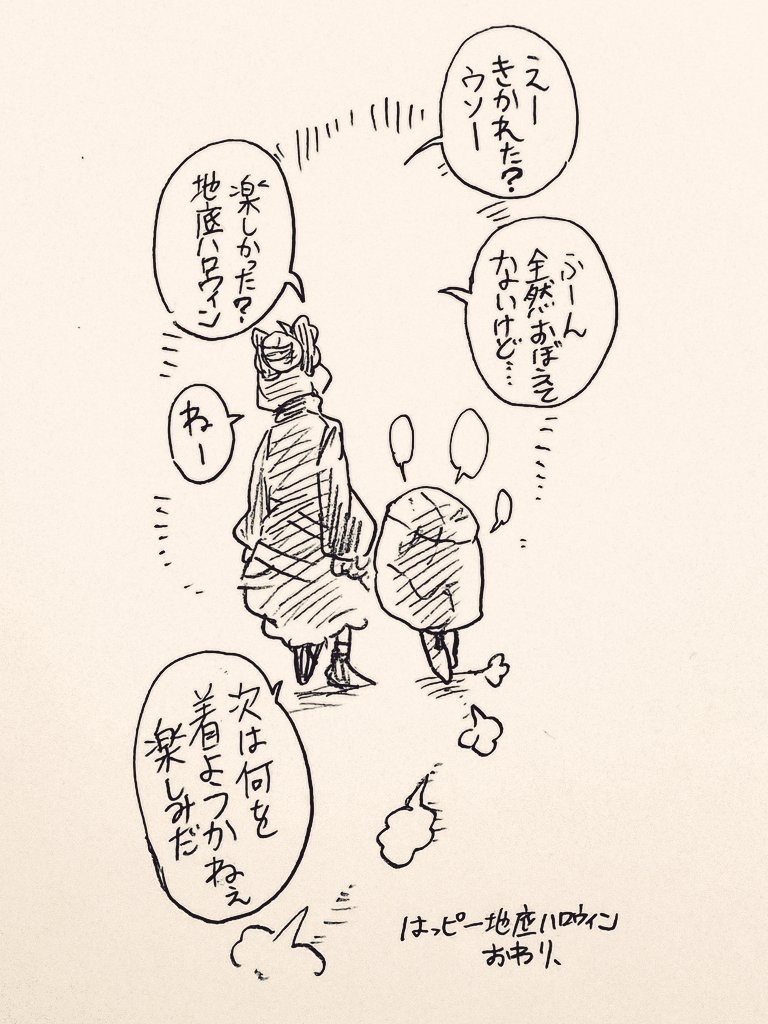 えー
きかれた?
ウソー
楽しかった?
地底ハロウィン
ふーん
全然おぼえて
ないけど…
ねー
次は何を
着ようかねぇ
楽しみだ
はっピー地底ハロウィン
おわり、